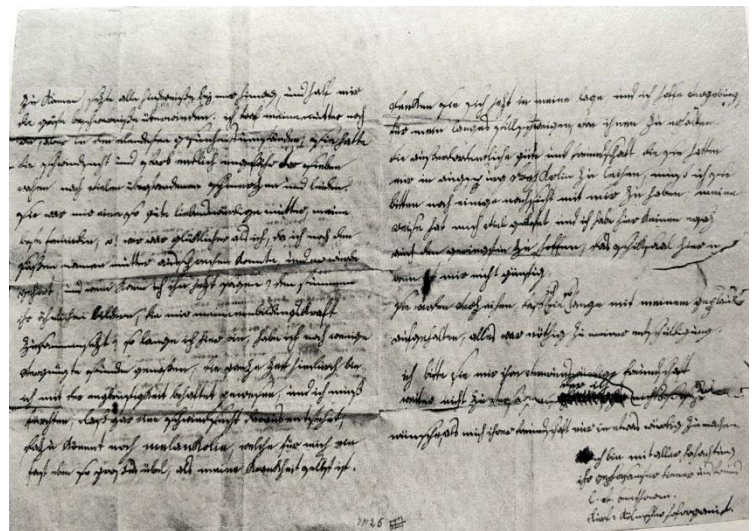 zu können, sezte alle hinderniße bej mir hinweg, und half mir
die gröste beschwerniße überwinden. ich traf meine mutter noch
an, aber in den elendesten gesundheitsumständen; sie hatte
die schwindsucht und starb endlich ungefähr vor sieben
wochen, nach vielen überstandenen schmerzen und leiden.
sie war mir eine so gute liebenswürdige mutter, meine
beste freundin; o! wer war glücklicher als ich, da ich noch den
süßen namen mutter aussprechen konnte, und er wurde
gehört, und wem kann ich ihn jezt sagen? den stummen
ihr ähnlichen bildern, die mir meine einbildungskraft
zusammensezt? so lange ich hier bin, habe ich noch wenige
vergnügte stunden genoßen, die ganze zeit hindurch bin
ich mit der engbrüstigkeit behaftet gewesen, und ich muß
fürchten, daß gar eine schwindsucht daraus entstehet,
dazu kömmt noch melankolie, welche für mich ein
fast eben so großes übel, als meine krankheit selbst ist.
denken sie sich jezt in meine lage, und ich hoffe vergebung,
für mein langes stillschweigen, von ihnen zu erhalten
die außerordentliche güte und freundschaft, die sie hatten
mir in augspurg drej Krolin zu leihen, muß ich sie
bitten noch einige nachsicht mit mir zu haben, meine
reise hat mich viel gekostet, und ich habe hier keinen ersaz
auch den geringsten zu hoffen, das schicksaal hier in
bonn ist mir nicht günstig.
sie werden verzeihen, daß ich sie so lange mit meinem geplauder
aufgehalten, alles war nöthig zu meiner entschuldigung.
ich bitte sie mir ihre verehrungswürdige freundschaft
weiter nicht zu versagen, der ich nichts so sehr
wünsche, als mich ihrer freundschaft nur in etwas würdig zu machen.
ich bin mit aller hochachtung
ihr gehorsamster diener und freund
l. v. beethowen.
kurf. kölnischer hoforganist.